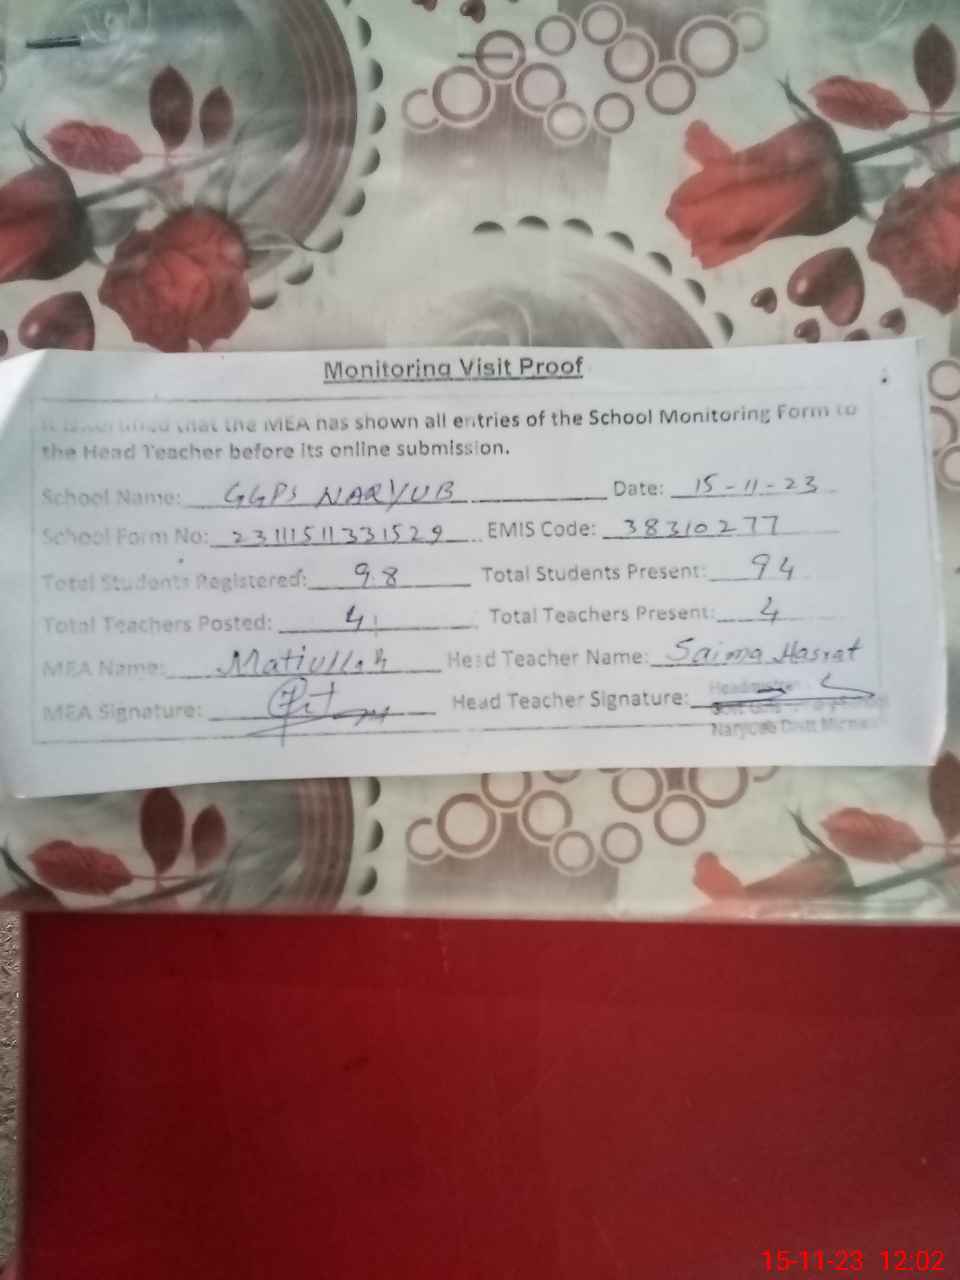 Monitoring Visit Proof
It is certified that the MEA has shown all entries of the School Monitoring Form to
the Head Teacher before its online submission.
School Name: GGPS NARYUB Date: 15-11-23
School Form No: 23111511331529 EMIS Code: 38310277
Total Students Registered: 98 Total Students Present: 94
Total Teachers Posted: 4 Total Teachers Present: 4
MEA Name: Matiullah Head Teacher Name: Saima Hasrat
MEA Signature: Head Teacher Signature:
Headmistress
Naryab Distt
15-11-23 12:02